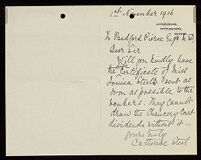 1st November 1916
To Bedford Pierce Esq M.D.
Dear Sir
Will you kindly have
the Certificate of Miss
Louisa Steel's sent as
soon as possible to the
bankers. They cannot
draw the Chancery Court
dividends without it —
yours truly
Catherine Steel